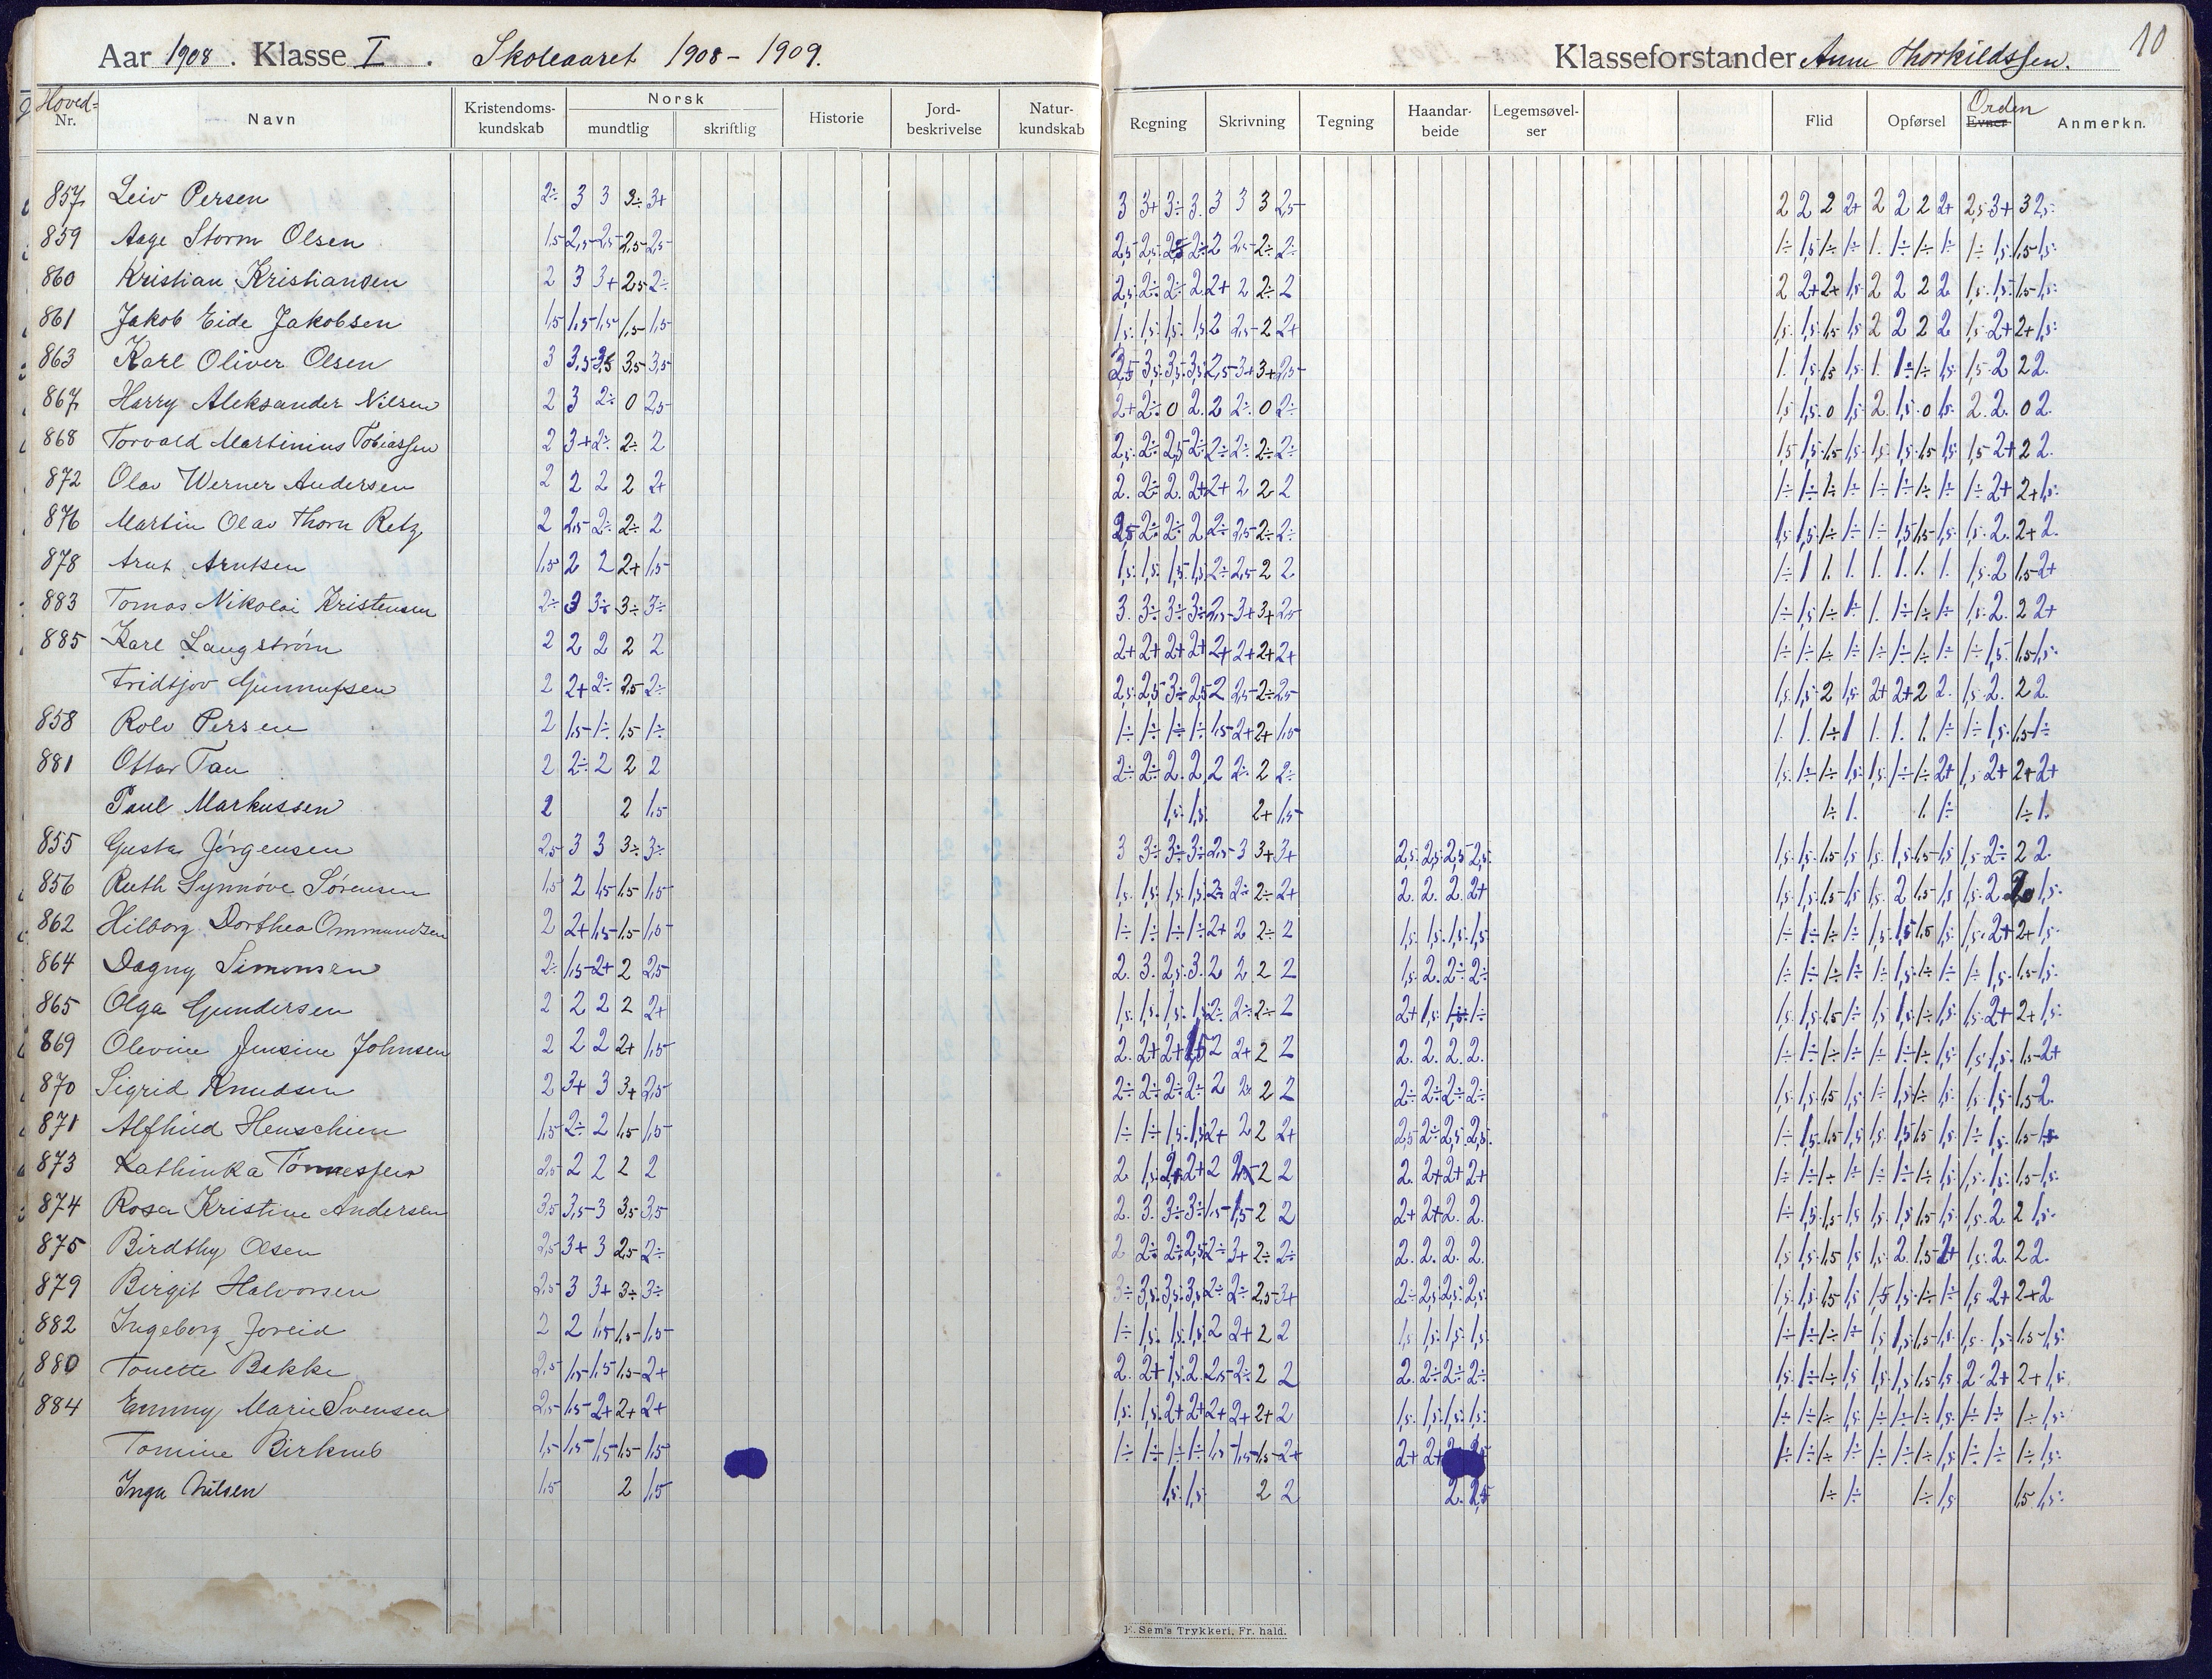 Aar 1908. Klasse I. Skoleaaret 1908 - 1909. Klasseforstander Anna Thorkildssen. 10
Hoved-Nr. Navn Kristendoms-kundskab Norsk mundtlig skriftlig Historie Jord-beskrivelse Natur-kundskab Regning Skrivning Tegning Haandar-beide Legemsøvel-ser Flid Opførsel Orden Evner Anmerkn.
857 Leiv Persen 2÷ 3 3 3÷ 3+ 3 3+ 3÷ 3. 3 3 3 2,5 2 2 2 2+ 2 2 2 2+ 2,5 3+ 3 2,5
859 Aage Storm Olsen 1,5 2,5 2,5 2,5 2,5
860 Kristian Kristiansen 2 3 3+ 2,5 2÷ 2,5 2÷ 2÷ 2. 2+ 2 2÷ 2 2 2+ 2+ 1,5 2 2 2 2 1,5 1,5 1,5 1,5
861 Jakob Eide Jakobsen 1,5 1,5 1,5 1,5 1,5 1,5 1,5 1,5 1,5 2 2,5 2 2+ 1,5 1,5 1,5 1,5 2 2 2 2 1,5 2+ 2+ 1,5
863 Karl Oliver Olsen 3 3,5 3,5 3,5 3,5 3,5 3,5 3,5 3,5 2,5 3+ 3+ 2,5 1. 1,5 1,5 1,5 1. 1÷ 1÷ 1,5 1,5 2 2 2.
867 Harry Aleksander Nilsen 2 3 2÷ 0 2,5 2+ 2÷ 0 2. 2 2÷ 0 2÷ 1,5 1,5 0 1,5 2. 1,5 0 1,5 2. 2. 0 2.
868 Torvald Martinius Tobiassen 2 3+ 2÷ 2÷ 2 2,5 2÷ 2,5 2÷ 2÷ 2÷ 2÷ 2÷ 1,5 1,5 1,5 1,5 1,5 1,5 1,5 1,5 1,5 2+ 2 2.
872 Olav Werner Andersen 2 2 2 2 2+ 2. 2÷ 2. 2+ 2+ 2 2 2 1÷ 1÷ 1÷ 1÷ 1÷ 1÷ 1÷ 1÷ 1÷ 2+ 2+ 1,5
876 Martin Olav Thorn Retz 2 2,5 2÷ 2÷ 2 2,5 2÷ 2÷ 2 2÷ 2,5 2÷ 2÷ 1,5 1,5 1÷ 1÷ 1÷ 1,5 1,5 1,5 1,5 2. 2+ 2.
878 Arnt Arntsen 1,5 2 2 2+ 1,5 1,5 1,5 1,5 1,5 2÷ 2,5 2 2 1÷ 1 1. 1. 1. 1. 1. 1. 1,5 2 1,5 2+
883 Tomas Nikolai Kristensen 2÷ 3 3÷ 3÷ 3÷ 3. 3÷ 3÷ 3÷ 2,5 3+ 3+ 2,5 1÷ 1,5 1÷ 1÷ 1. 1÷ 1÷ 1÷ 1,5 2. 2 2+
885 Karl Langstrøm 2 2 2 2 2 2+ 2+ 2+ 2+ 2+ 2+ 2+ 2+ 1÷ 1÷ 1÷ 1÷ 1÷ 1÷ 1÷ 1÷ 1÷ 1,5 1,5 1,5
Fridtjov Gunnufsen 2 2+ 2÷ 2,5 2÷ 2,5 2,5 3÷ 2,5 2 2,5 2÷ 2,5 1,5 1,5 2 1,5 2+ 2+ 2 2. 1,5 2. 2 2.
858 Rolv Persen 2 1,5 1÷ 1,5 1÷ 1÷ 1÷ 1÷ 1÷ 1,5 2+ 2+ 1,5 1. 1. 1÷ 1 1. 1. 1. 1÷ 1÷ 1,5 1,5 1÷
881 Ottar Tau 2 2÷ 2 2 2 2÷ 2÷ 2. 2. 2 2÷ 2 2÷ 1,5 1÷ 1÷ 1,5 1,5 1÷ 1÷ 2+ 1,5 2+ 2+ 2+
Paul Markussen 2 2 1,5 1,5 1,5 2+ 1,5 1÷ 1. 1. 1÷ 1÷ 1.
855 Gusta Jørgensen 2,5 3 3 3÷ 3÷ 3 3÷ 3÷ 3÷ 2,5 3 3+ 3+ 2,5 2,5 2,5 2,5 1,5 1,5 1,5 1,5 1,5 1,5 1,5 1,5 1,5 2÷ 2 2.
856 Ruth Synnøve Sørensen 1,5 2 1,5 1,5 1,5 1,5 1,5 1,5 1,5 2÷ 2÷ 2÷ 2+ 2. 2. 2. 2+ 1,5 1,5 1,5 1,5 1,5 2 1,5 1,5 1,5 2 1,5
862 Hilborg Dorthea Ommundsen 2 2+ 1,5 1,5 1,5 1÷ 1÷ 1÷ 1÷ 2+ 2 2÷ 2 1,5 1,5 1,5 1,5 1÷ 1÷ 1÷ 1÷ 1,5 1,5 1,5 1,5 1,5 2+ 2+ 1,5
864 Dagny Simonsen 2÷ 1,5 2+ 2 2,5 2. 3. 2,5 3. 2 2 2 2 1,5 2. 2÷ 2÷ 1÷ 1÷ 1÷ 1÷ 1÷ 1,5 1÷ 1÷ 1÷ 1,5 1,5 1,5
865 Olga Gundersen 2 2 2 2 2+ 1,5 1,5 1,5 1,5 2÷ 2÷ 2÷ 2 2+ 1,5 1÷ 1÷ 1,5 1,5 1,5 1÷ 1,5 1,5 1÷ 1,5 1,5 2+ 2+ 1,5
869 Olevine Jensine Johnsen 2 2 2 2+ 1,5 2. 2+ 2+ 1,5 2 2+ 2 2 2. 2. 2. 2. 1÷ 1÷ 1÷ 1÷ 1÷ 1÷ 1÷ 1,5 1,5 1,5 1,5 2+
870 Sigrid Knudsen 2 3+ 3 3+ 2,5 2÷ 2÷ 2÷ 2÷ 2 2÷ 2 2 2÷ 2÷ 2÷ 2÷ 1,5 1,5 1,5 1,5 1÷ 1,5 1÷ 1,5 1,5 1,5 1,5 2.
871 Alfhild Henschien 1,5 2÷ 2 1,5 1,5 1÷ 1÷ 1,5 1,5 2+ 2 2 2+ 2,5 2÷ 2,5 2,5 1÷ 1,5 1,5 1,5 1,5 1,5 1,5 1,5 1÷ 1,5 1,5 1,5
873 Kathinka Tønnessen 2,5 2 2 2 2 2. 1,5 2+ 2+ 2 2 2 2. 2+ 2+ 2+ 1÷ 1÷ 1÷ 1÷ 1÷ 1÷ 1÷ 1÷ 1,5 1,5 1,5 1,5
874 Rosa Kristine Andersen 3,5 3,5 3 3,5 3,5 2. 3. 3÷ 3÷ 1,5 1,5 2 2 2+ 2+ 2. 2. 1÷ 1,5 1,5 1,5 1,5 1,5 1,5 1,5 1,5 2. 2 1,5
875 Birdthy Olsen 2,5 3+ 3 2,5 2÷ 2 2÷ 2÷ 2,5 2÷ 3+ 2÷ 2÷ 2. 2. 2. 2. 1,5 1,5 1,5 1,5 1,5 2. 1,5 2+ 1,5 2. 2 2.
879 Birgit Halvorsen 2,5 3 3+ 3÷ 3÷ 3÷ 3,5 3,5 3,5 2÷ 2÷ 2,5 3+ 2÷ 2,5 2,5 2,5 1,5 1,5 1,5 1,5 1,5 1,5 1÷ 1÷ 1,5 2+ 2+ 2
882 Ingeborg Joreid 2 2 1,5 1,5 1,5 1÷ 1,5 1,5 1,5 2 2+ 2 2 1,5 1,5 1,5 1,5 1÷ 1÷ 1÷ 1÷ 1,5 1,5 1,5 1,5 1,5 1,5 1,5 1,5
880 Tonette Bakke 2,5 1,5 1,5 1,5 2+ 2. 2+ 1,5 2. 2,5 2÷ 2 2 2. 2÷ 2÷ 2÷ 1,5 1÷ 1÷ 1,5 1,5 1,5 1,5 1,5 2. 2+ 2+ 1,5
884 Emmy Marie Svensen 2,5 1,5 2+ 2+ 2+ 1,5 1,5 2+ 2+ 2+ 2+ 2+ 2 1,5 1,5 1,5 1,5 1÷ 1÷ 1÷ 1,5 1÷ 1÷ 1÷ 1,5 1÷ 1÷ 1÷ 1,5
Tomine Birknes 1,5 1,5 1,5 1,5 1,5 1÷ 1÷ 1÷ 1÷ 1,5 1,5 1,5 2+ 2+ 2+ 1÷ 1÷ 1÷ 1÷ 1÷ 1÷ 1÷ 1,5 1÷ 1÷ 1÷ 1,5
Inga Nilsen 1,5 2 1,5 1,5 1,5 2 2 2. 2,5 1÷ 1÷ 1÷ 1,5 1,5 1,5
E. Sem's Trykkeri, Fr. hald.